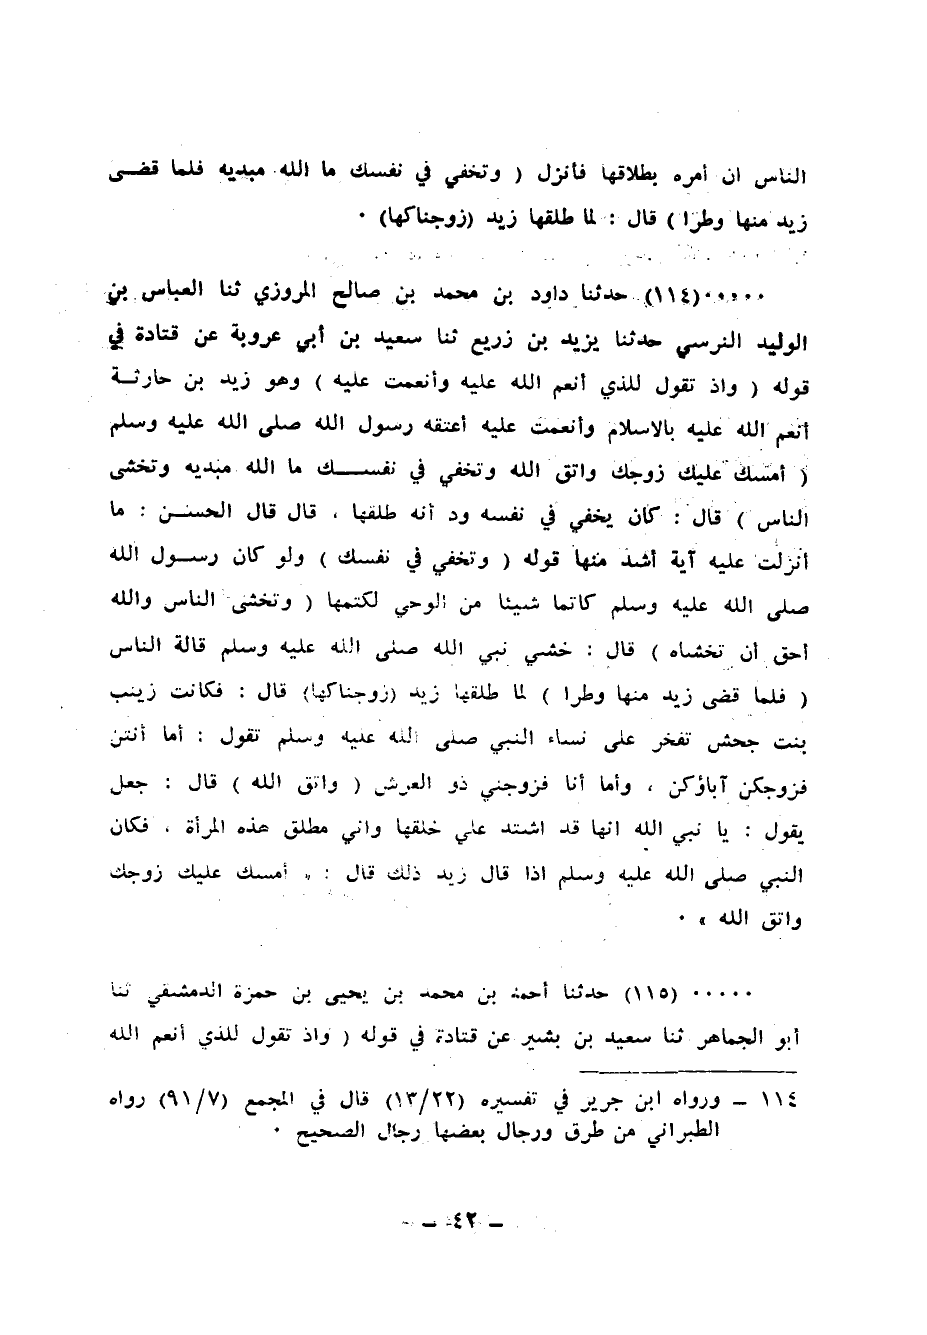 الناس ان أمره بطلاقها فأنزل ( وتخفي في نفسك ما الله مبديه فلما قضى
زيد منها وطرا ) قال : لما طلقها زيد (زوجناكها) ٠
٠٠٠٠٠(١١٤) حدثنا داود بن محمد بن صالح المروزي ثنا العباس بن
الوليد النرسي حدثنا يزيد بن زريع ثنا سعيد بن أبي عروبة عن قتادة في
قوله ( واذ تقول للذي أنعم الله عليه وأنعمت عليه ) وهو زيد بن حارثة
أنعم الله عليه بالاسلام وأنعمت عليه أعتقه رسول الله صلى الله عليه وسلم
( أمسك عليك زوجك واتق الله وتخفي في نفسك ما الله مبديه وتخشى
الناس ) قال : كان يخفي في نفسه ود أنه طلقها ، قال قال الحسن : ما
أنزلت عليه آية أشد منها قوله ( وتخفي في نفسك ) ولو كان رسول الله
صلى الله عليه وسلم كاتما شيئا من الوحي لكتمها ( وتخشى الناس والله
أحق أن تخشاه ) قال : خشي نبي الله صلى الله عليه وسلم قالة الناس
( فلما قضى زيد منها وطرا ) لما طلقها زيد (زوجناكها) قال : فكانت زينب
بنت جحش تفخر على نساء النبي صلى الله عليه وسلم تقول : أما أنتن
فزوجكن آباؤكن ، وأما أنا فزوجني ذو العرش ( واتق الله ) قال : جعل
يقول : يا نبي الله انها قد اشتد علي خلقها واني مطلق هذه المرأة ، فكان
النبي صلى الله عليه وسلم اذا قال زيد ذلك قال : « أمسك عليك زوجك
واتق الله » ٠
٠٠٠٠٠ (١١٥) حدثنا أحمد بن محمد بن يحيى بن حمزة الدمشقي ثنا
أبو الجماهر ثنا سعيد بن بشير عن قتادة في قوله ( واذ تقول للذي أنعم الله
١١٤ – ورواه ابن جرير في تفسيره (١٣/٢٢) قال في المجمع (٩١/٧) رواه
الطبراني من طرق ورجال بعضها رجال الصحيح ٠
– ٤٢ –